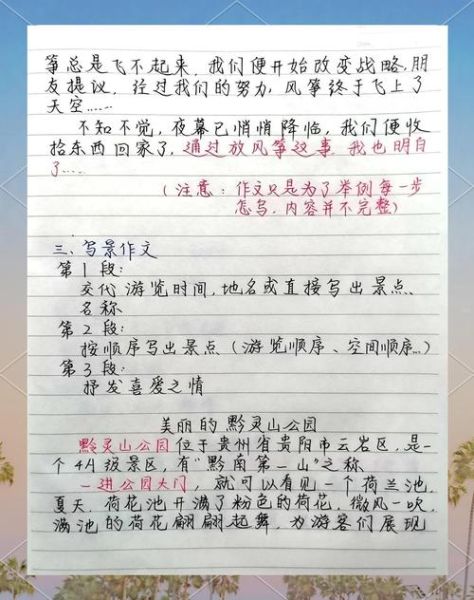 筝总是飞不起来.我们便开始改变战略,朋
友提议,经过我们的努力,风筝终于飞上了
天空……
不知不觉,夜幕已悄悄降临,我们便收
拾东西回家了,通过放风筝这事.我也明白
了……
(注意:作文只是为了举例每一步
怎写,内容并不完整)
三、写景作文
第1段:
交代游览时间,地名或直接写出景点、
名称
第2段:
按顺序写出景点(游览顺序、空间顺序…)
第3段:
抒发喜爱之情
美丽的黔灵山公园
黔灵山公园位于贵州省贵阳市云岩区,是一
个4A级景区,有“黔南第一山”之称
一进公园大门,就可以看见一个荷兰池,
夏天,荷花池开满了粉色的荷花,微风一吹,
满池的荷花翩翩起舞,为游客们展现